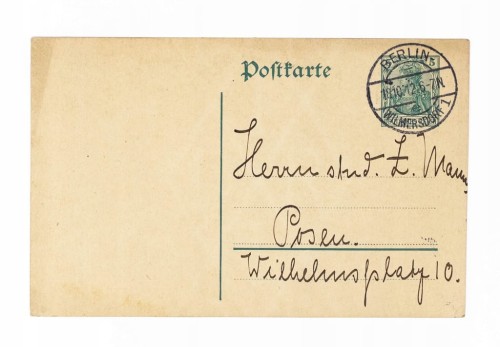 Postkarte
BERLIN
10.10.12.6-7N
WILMERSDORF 1
Herrn stud. Z. Mann.
Posen.
Wilhelmsplatz 10.